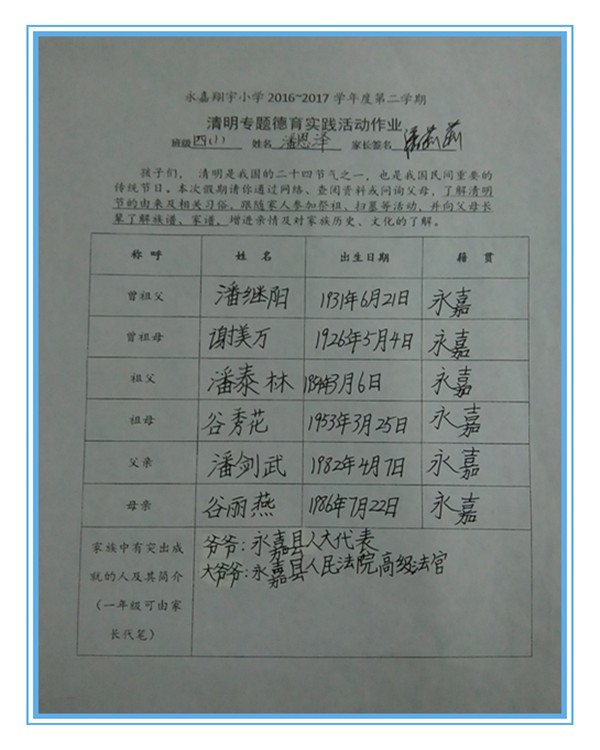 永嘉翔宇小学 2016~2017 学年度第二学期
清明专题德育实践活动作业
班级 四(1) 姓名 潘恩泽 家长签名
孩子们，清明是我国的二十四节气之一，也是我国民间重要的
传统节日。本次假期请你通过网络、查阅资料或问询父母，了解清明
节的由来及相关习俗、跟随家人参加祭祖、扫墓等活动，并向父母长
辈了解族谱、家谱，增进亲情及对家族历史、文化的了解。
称呼 姓名 出生日期 籍贯
曾祖父 潘继阳 1931年6月21日 永嘉
曾祖母 谢美万 1926年5月4日 永嘉
祖父 潘泰林 3月6日 永嘉
祖母 谷秀花 1953年3月25日 永嘉
父亲 潘剑武 1982年4月7日 永嘉
母亲 谷丽燕 1986年7月22日 永嘉
家族中有突出成 爷爷：永嘉县人大代表
就的人及其简介 大爷爷：永嘉县人民法院高级法官
（一年级可由家
长代笔）